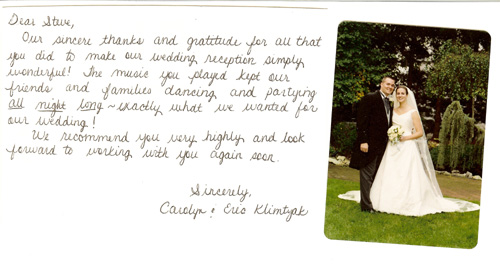 Dear Steve,
Our sincere thanks and gratitude for all that
you did to make our wedding reception simply
wonderful! The music you played kept our
friends and families dancing and partying
all night long ~ exactly what we wanted for
our wedding!
We recommend you very highly and look
forward to working with you again soon.
Sincerely,
Carolyn & Eric